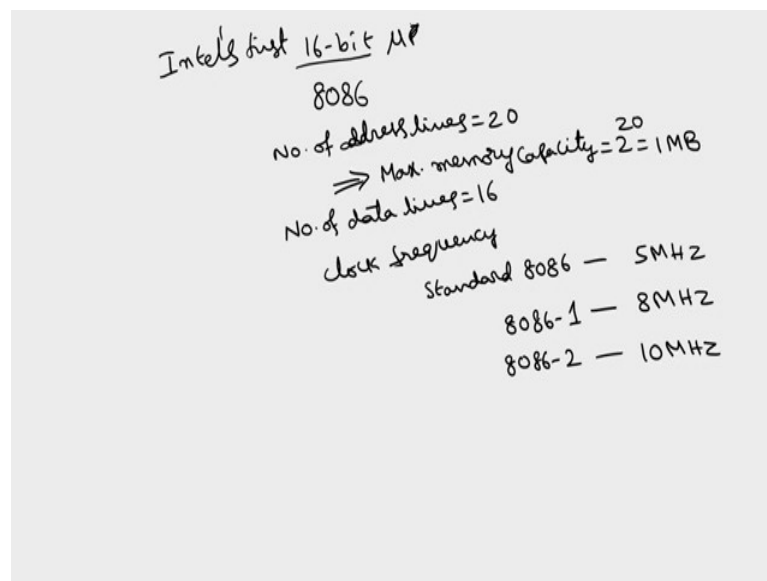 Intel's first 16-bit μP
8086
No. of address lines = 20
⇒ Max. memory capacity = 2²⁰ = 1MB
No. of data lines = 16
clock frequency
Standard 8086 — 5MHZ
8086-1 — 8MHZ
8086-2 — 10MHZ